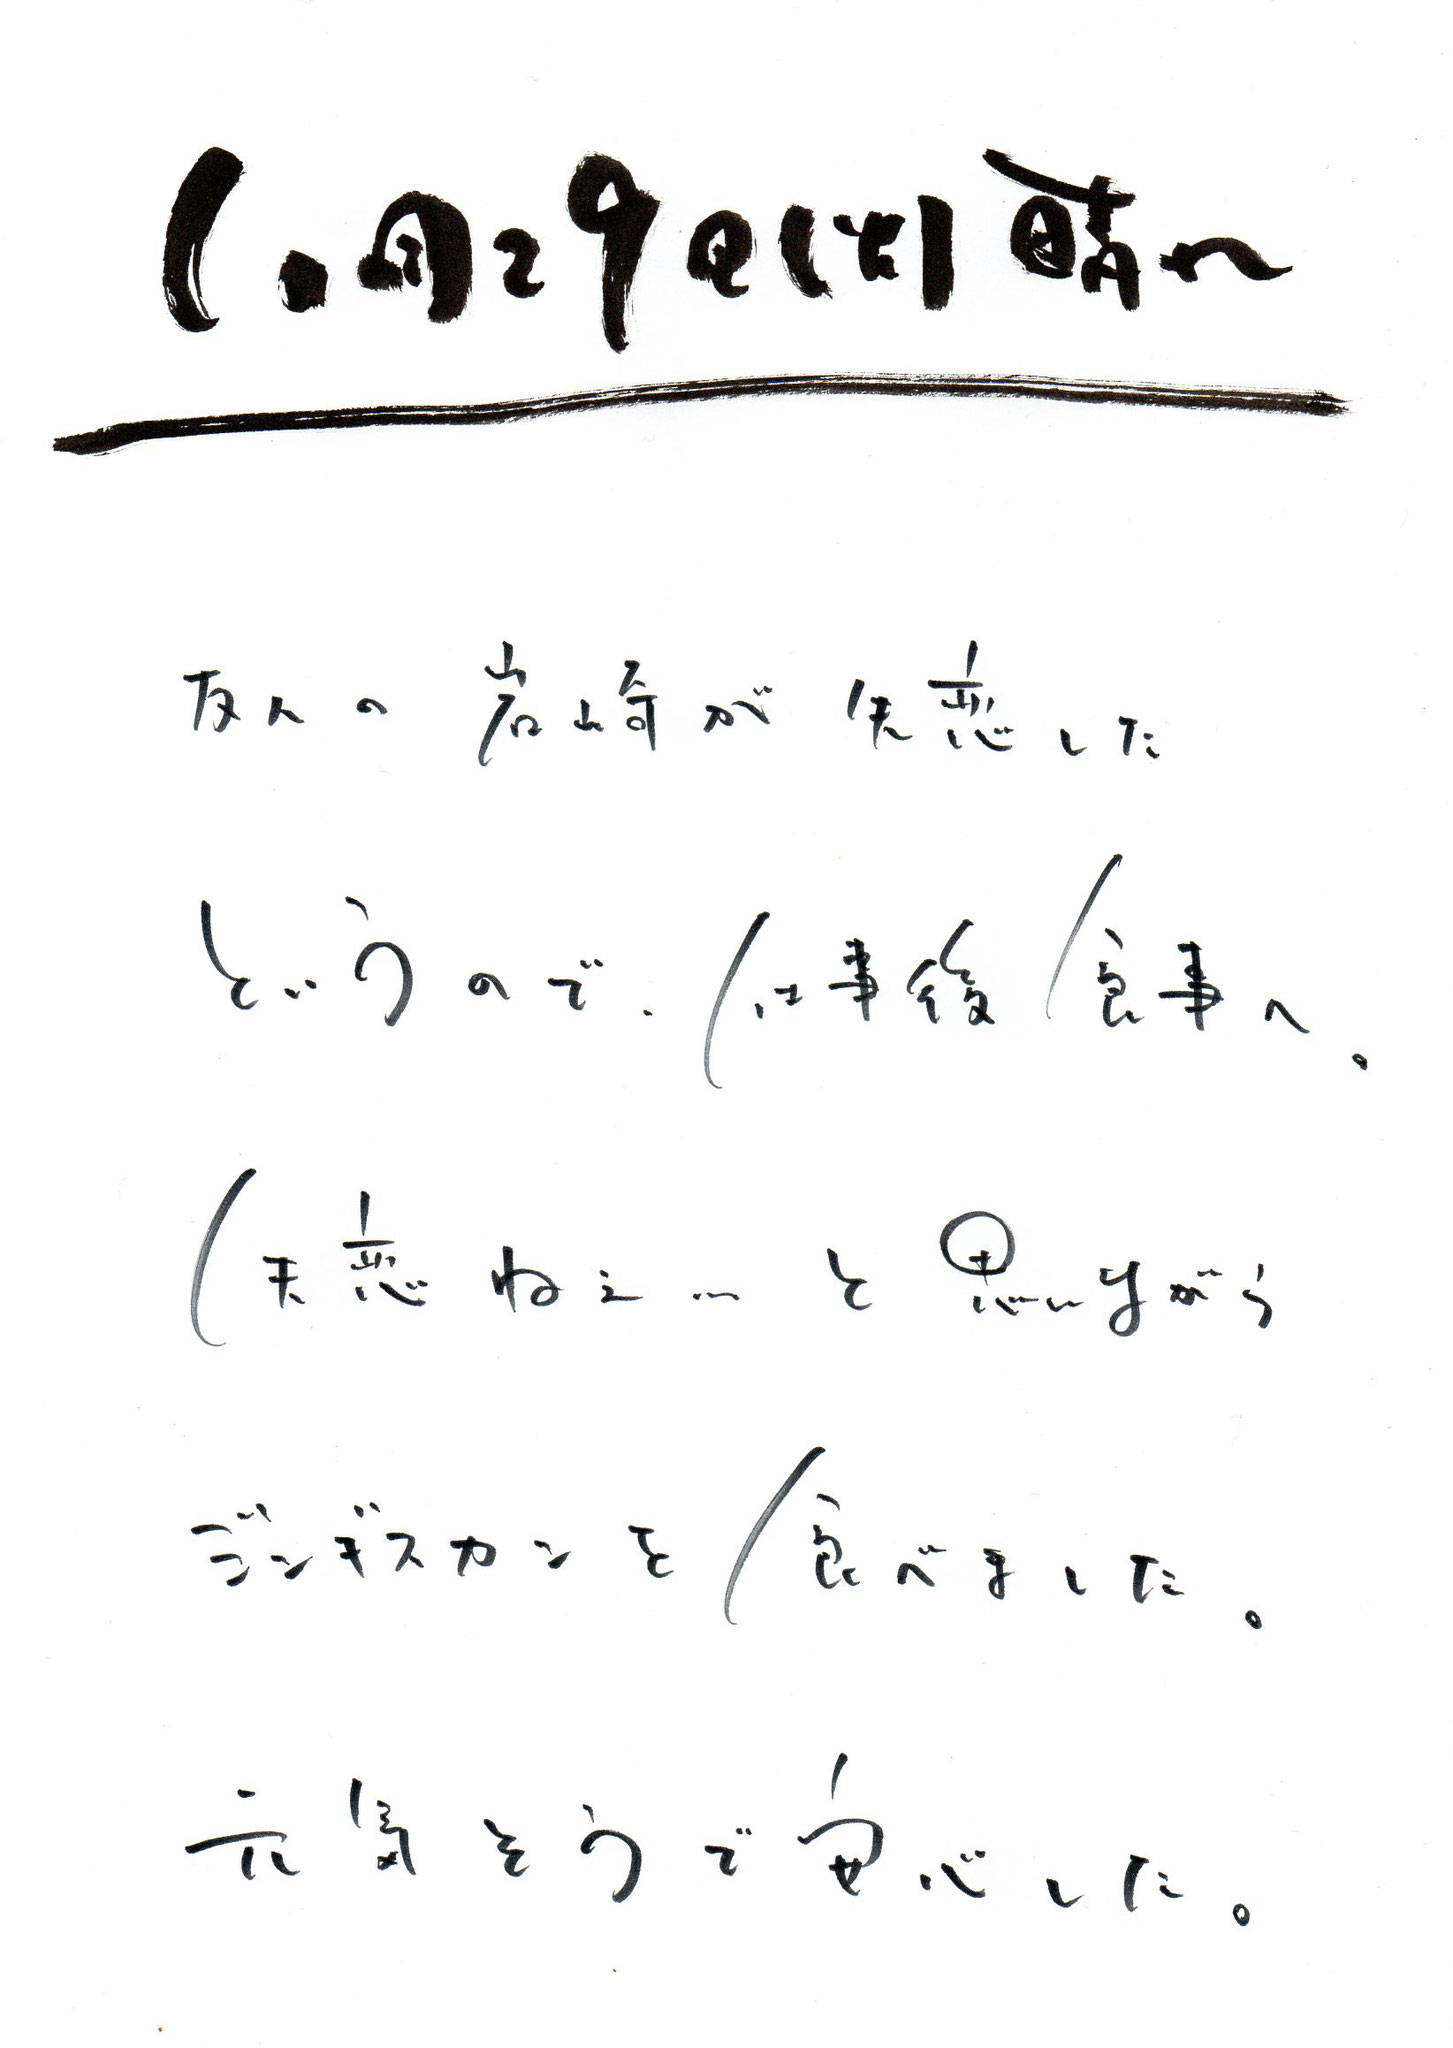 10月29日(木)晴れ
友人の岩崎が失恋した
というので、仕事後食事へ。
失恋ねえ…と思いながら
ジンギスカンを食べました。
元気そうで安心した。